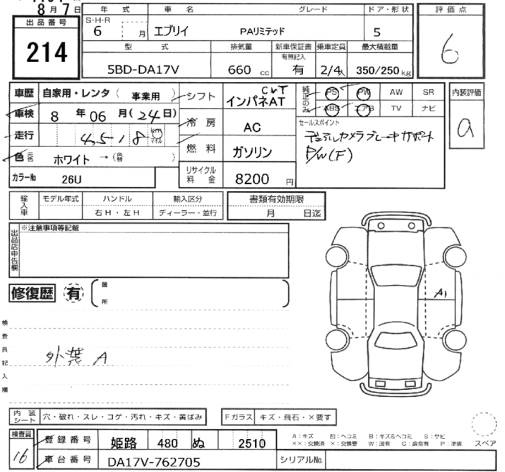 8月7日
出品番号
214
年式
車名
グレード
ドア・形状
S・H・R
6 月
エブリイ
PAリミテッド
5
型式
排気量
新車保証書
有無記入
乗車定員
最大積載量
5BD-DA17V
660 cc
有
2/4人
350/250 kg
評価点
6
車歴
自家用・レンタ(事業用)
シフト
CVT
インパネAT
車検
8年 06月(24日)
冷房
AC
走行
4518 km マイル
燃料
ガソリン
色
ホワイト
→
カラーNo
26U
リサイクル料金
8200円
PS PW AW SR
ABS エアB TV ナビ
セールスポイント
デュアルカメラブレーキサポート
P/W(F)
内装評価
a
輸入車
モデル年式
ハンドル
右H・左H
輸入区分
ディーラー・並行
書類有効期限
月 日迄
出品店申告欄
※注意事項等記載
修復歴
有
箇所
検査員記入欄
外装A
A1
内装シート
穴・破れ・スレ・コゲ・汚れ・キズ・黄ばみ
Fガラス
キズ・飛石・×要す
スペア
検査員
16
登録番号
姫路 480 ぬ 2510
車台番号
DA17V-762705
シリアルNo.